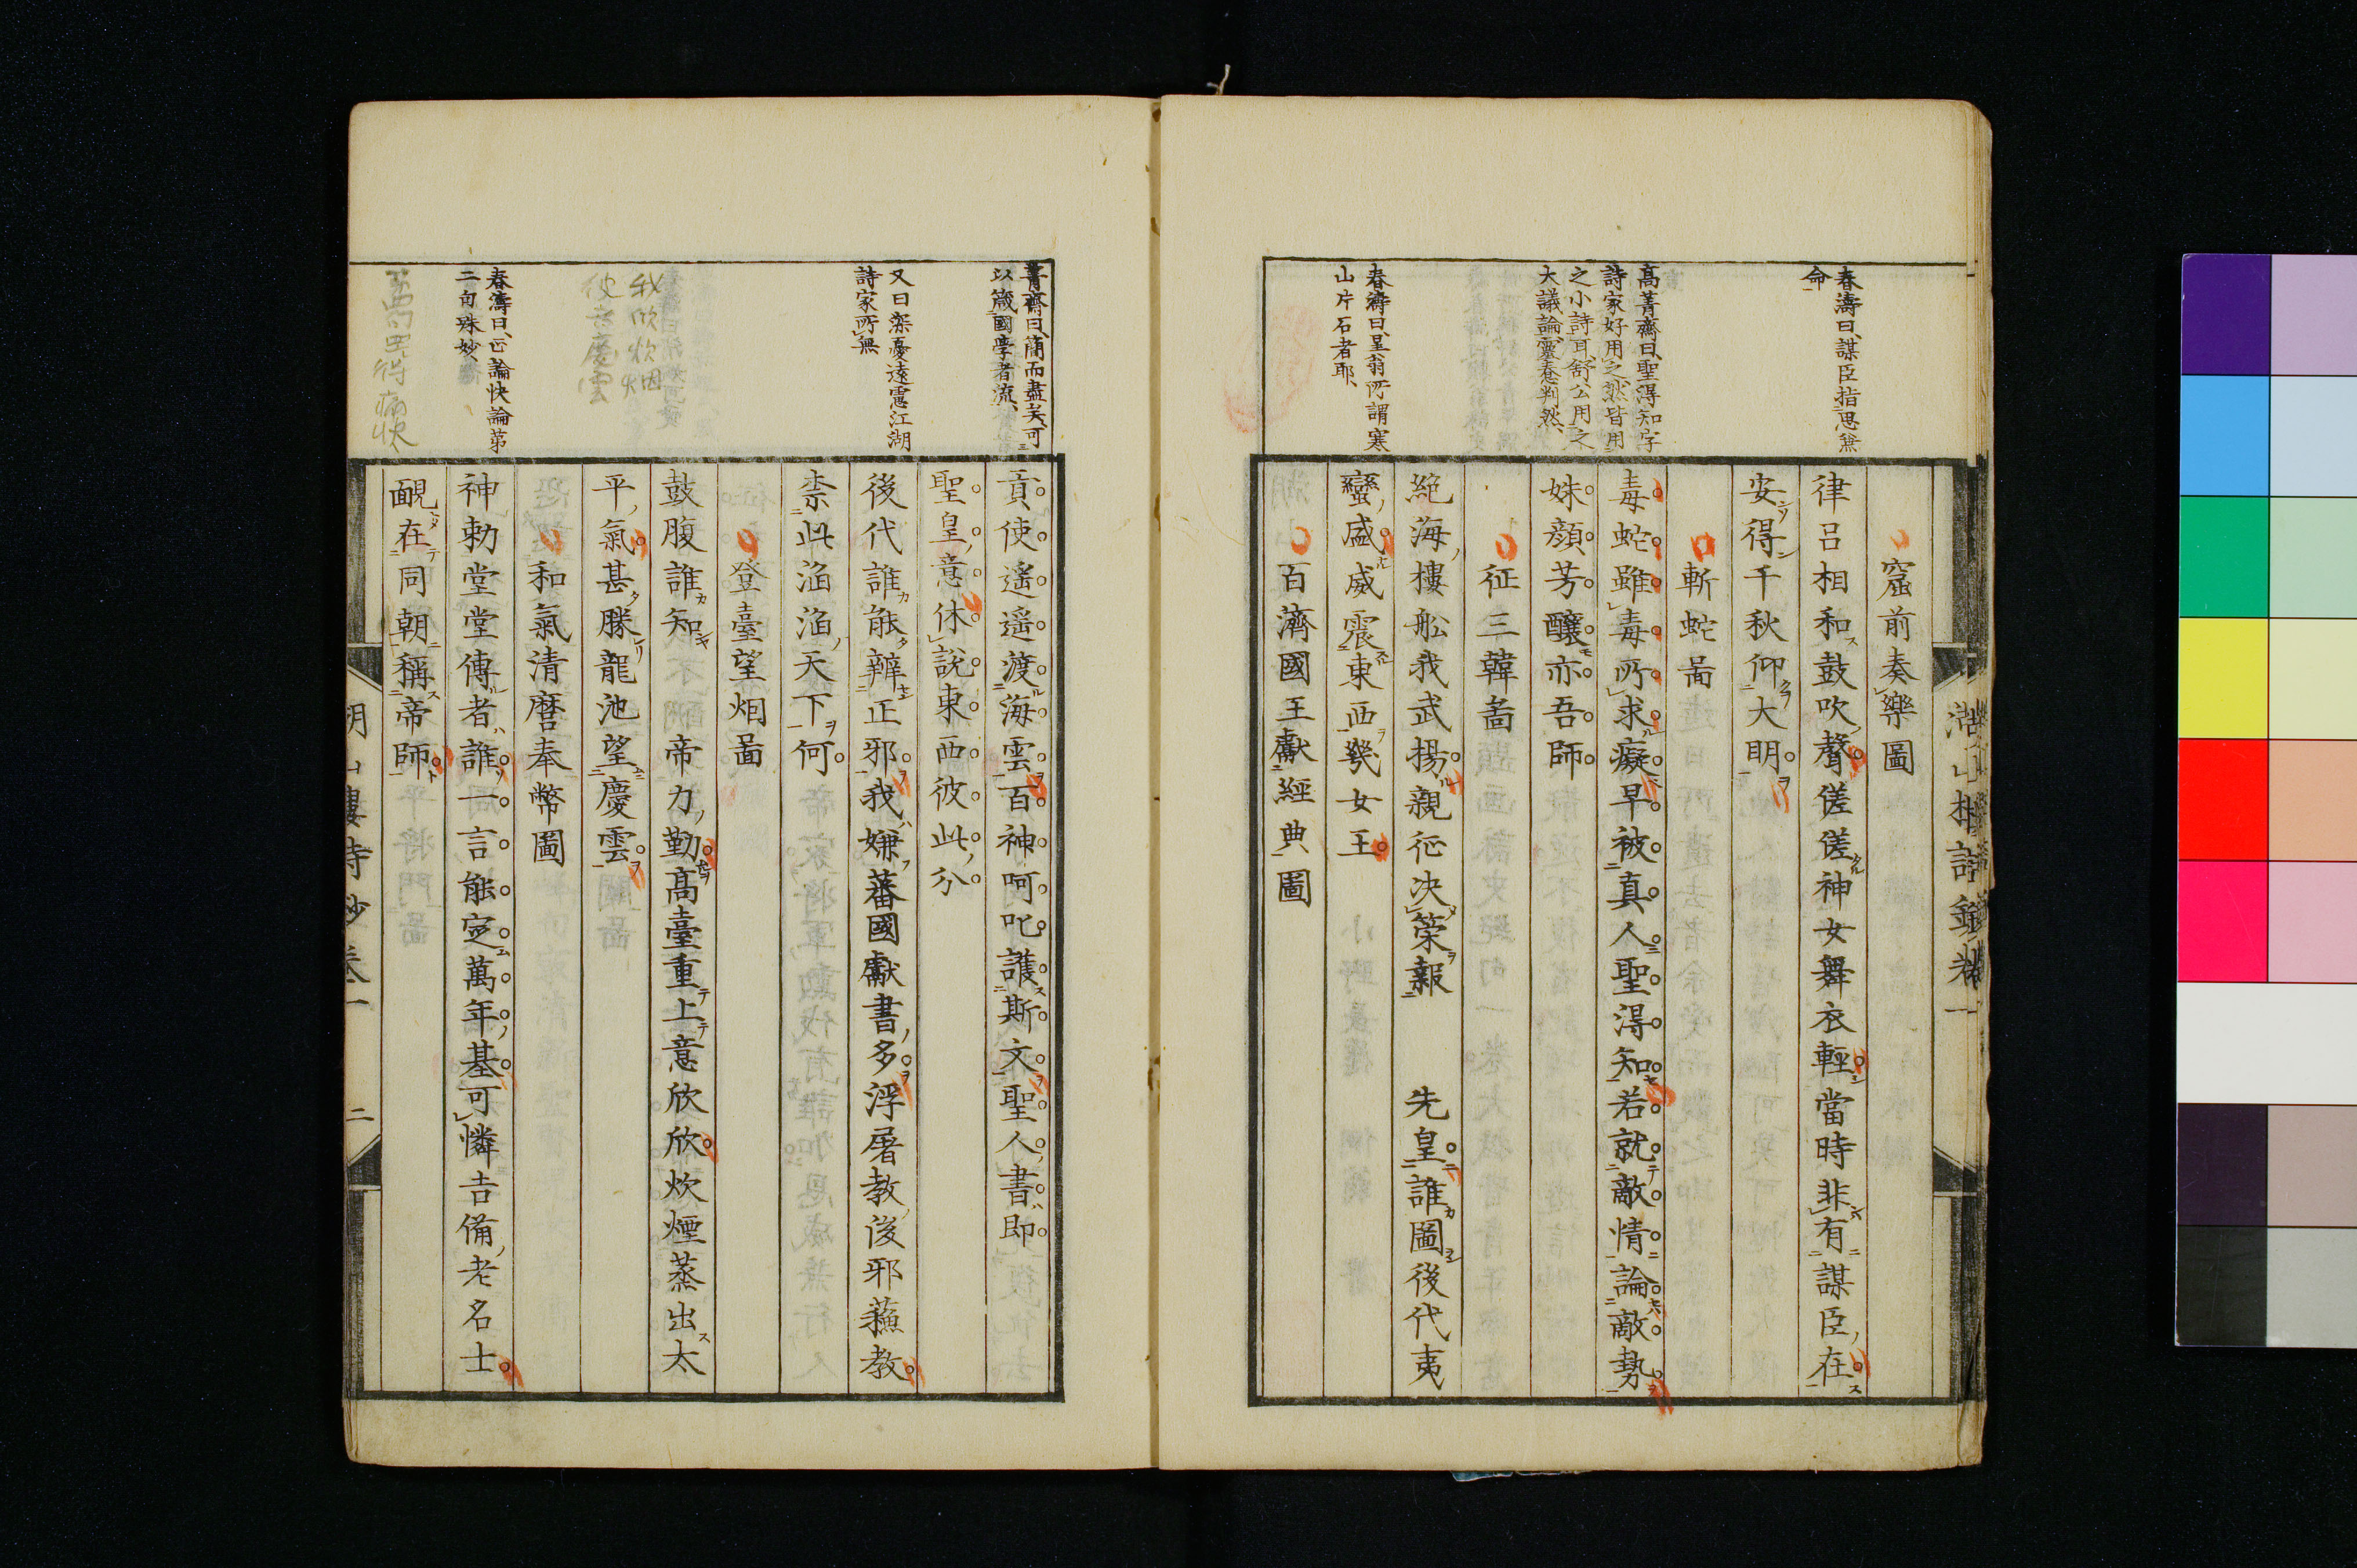 春濤曰、謀臣指思兼
命
高菁齋曰、聖得知字
詩家好用之、然皆用
之小詩耳、舒公用之
大議論、靈蠢判然、
春濤曰、星翁所謂寒
山片石者耶、
窟前奏樂圖
律呂相和鼓吹聲傞傞神女舞衣輕當時非有謀臣在
安得千秋仰大明
斬蛇啚
毒蛇雖毒所求癡早被真人聖得知若就敵情論敵勢
姝顏芳釀亦吾師
征三韓啚
絕海樓船我武揚親征決策報　先皇誰圖後代夷
蠻盛威震東西幾女王
百濟國王獻經典圖
菁齋曰、簡而盡矣、可
以箴國學者流、
又曰、深憂遠慮、江湖
詩家所無
春濤曰、正論快論、第
二句殊妙、
我欣炊烟
彼主慶雲
得痛快
貢使遙遙渡海雲百神呵叱護斯文聖人書即
聖皇意休說東西彼此分
後代誰能辨正邪我嫌蕃國獻書多浮屠教後邪蘓教
柰此滔滔天下何
登臺望烟啚
鼓腹誰知　帝力勤高臺重上意欣欣炊煙蒸出太
平氣甚勝龍池望慶雲
和氣清麿奉幣圖
神勅堂堂傳者誰一言能定萬年基可憐吉備老名士
靦在同朝稱帝師
湖山樓詩鈔卷一　二